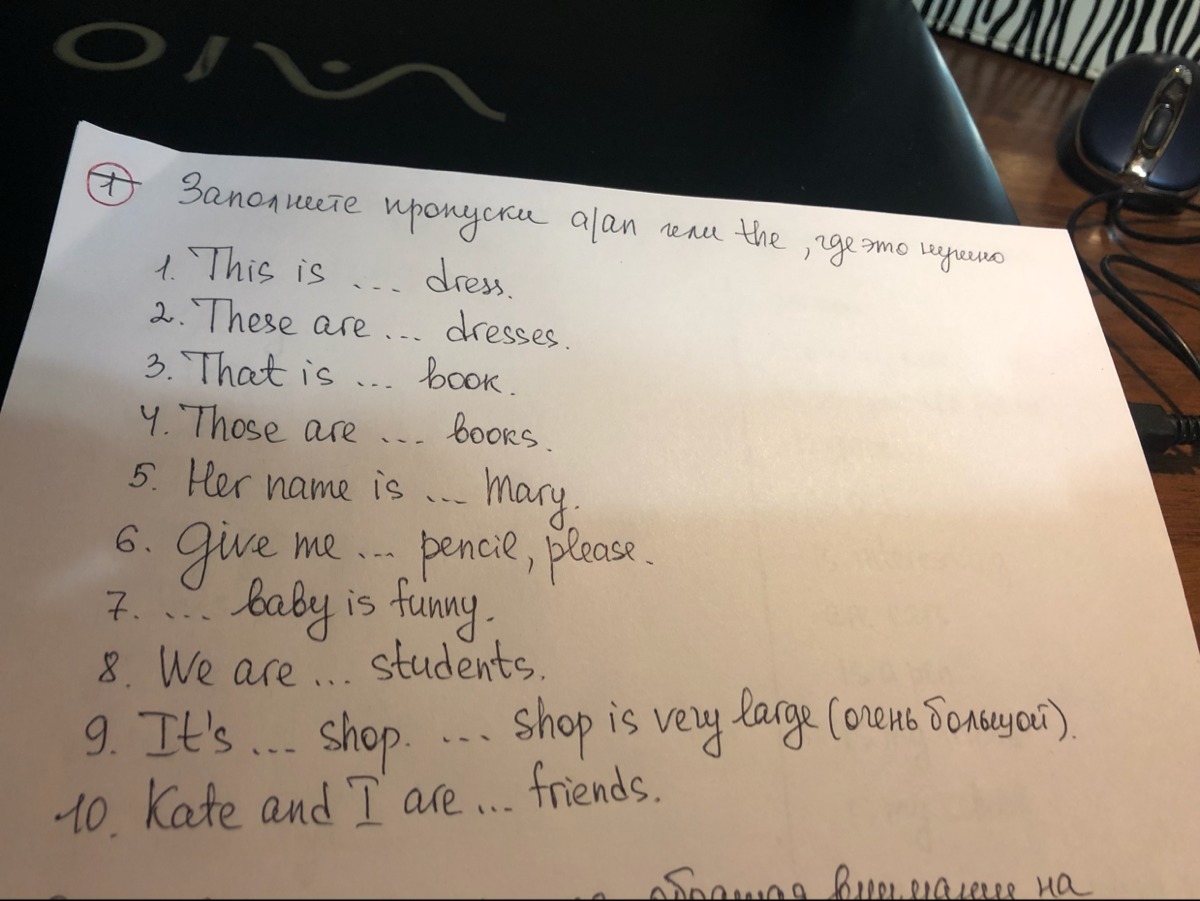 VAIO
1 Заполните пропуски a/an или the, где это нужно
1. This is ... dress.
2. These are ... dresses.
3. That is ... book.
4. Those are ... books.
5. Her name is ... Mary.
6. Give me ... pencil, please.
7. ... baby is funny.
8. We are ... students.
9. It's ... shop. ... shop is very large (очень большой).
10. Kate and I are ... friends.
обращая внимание на